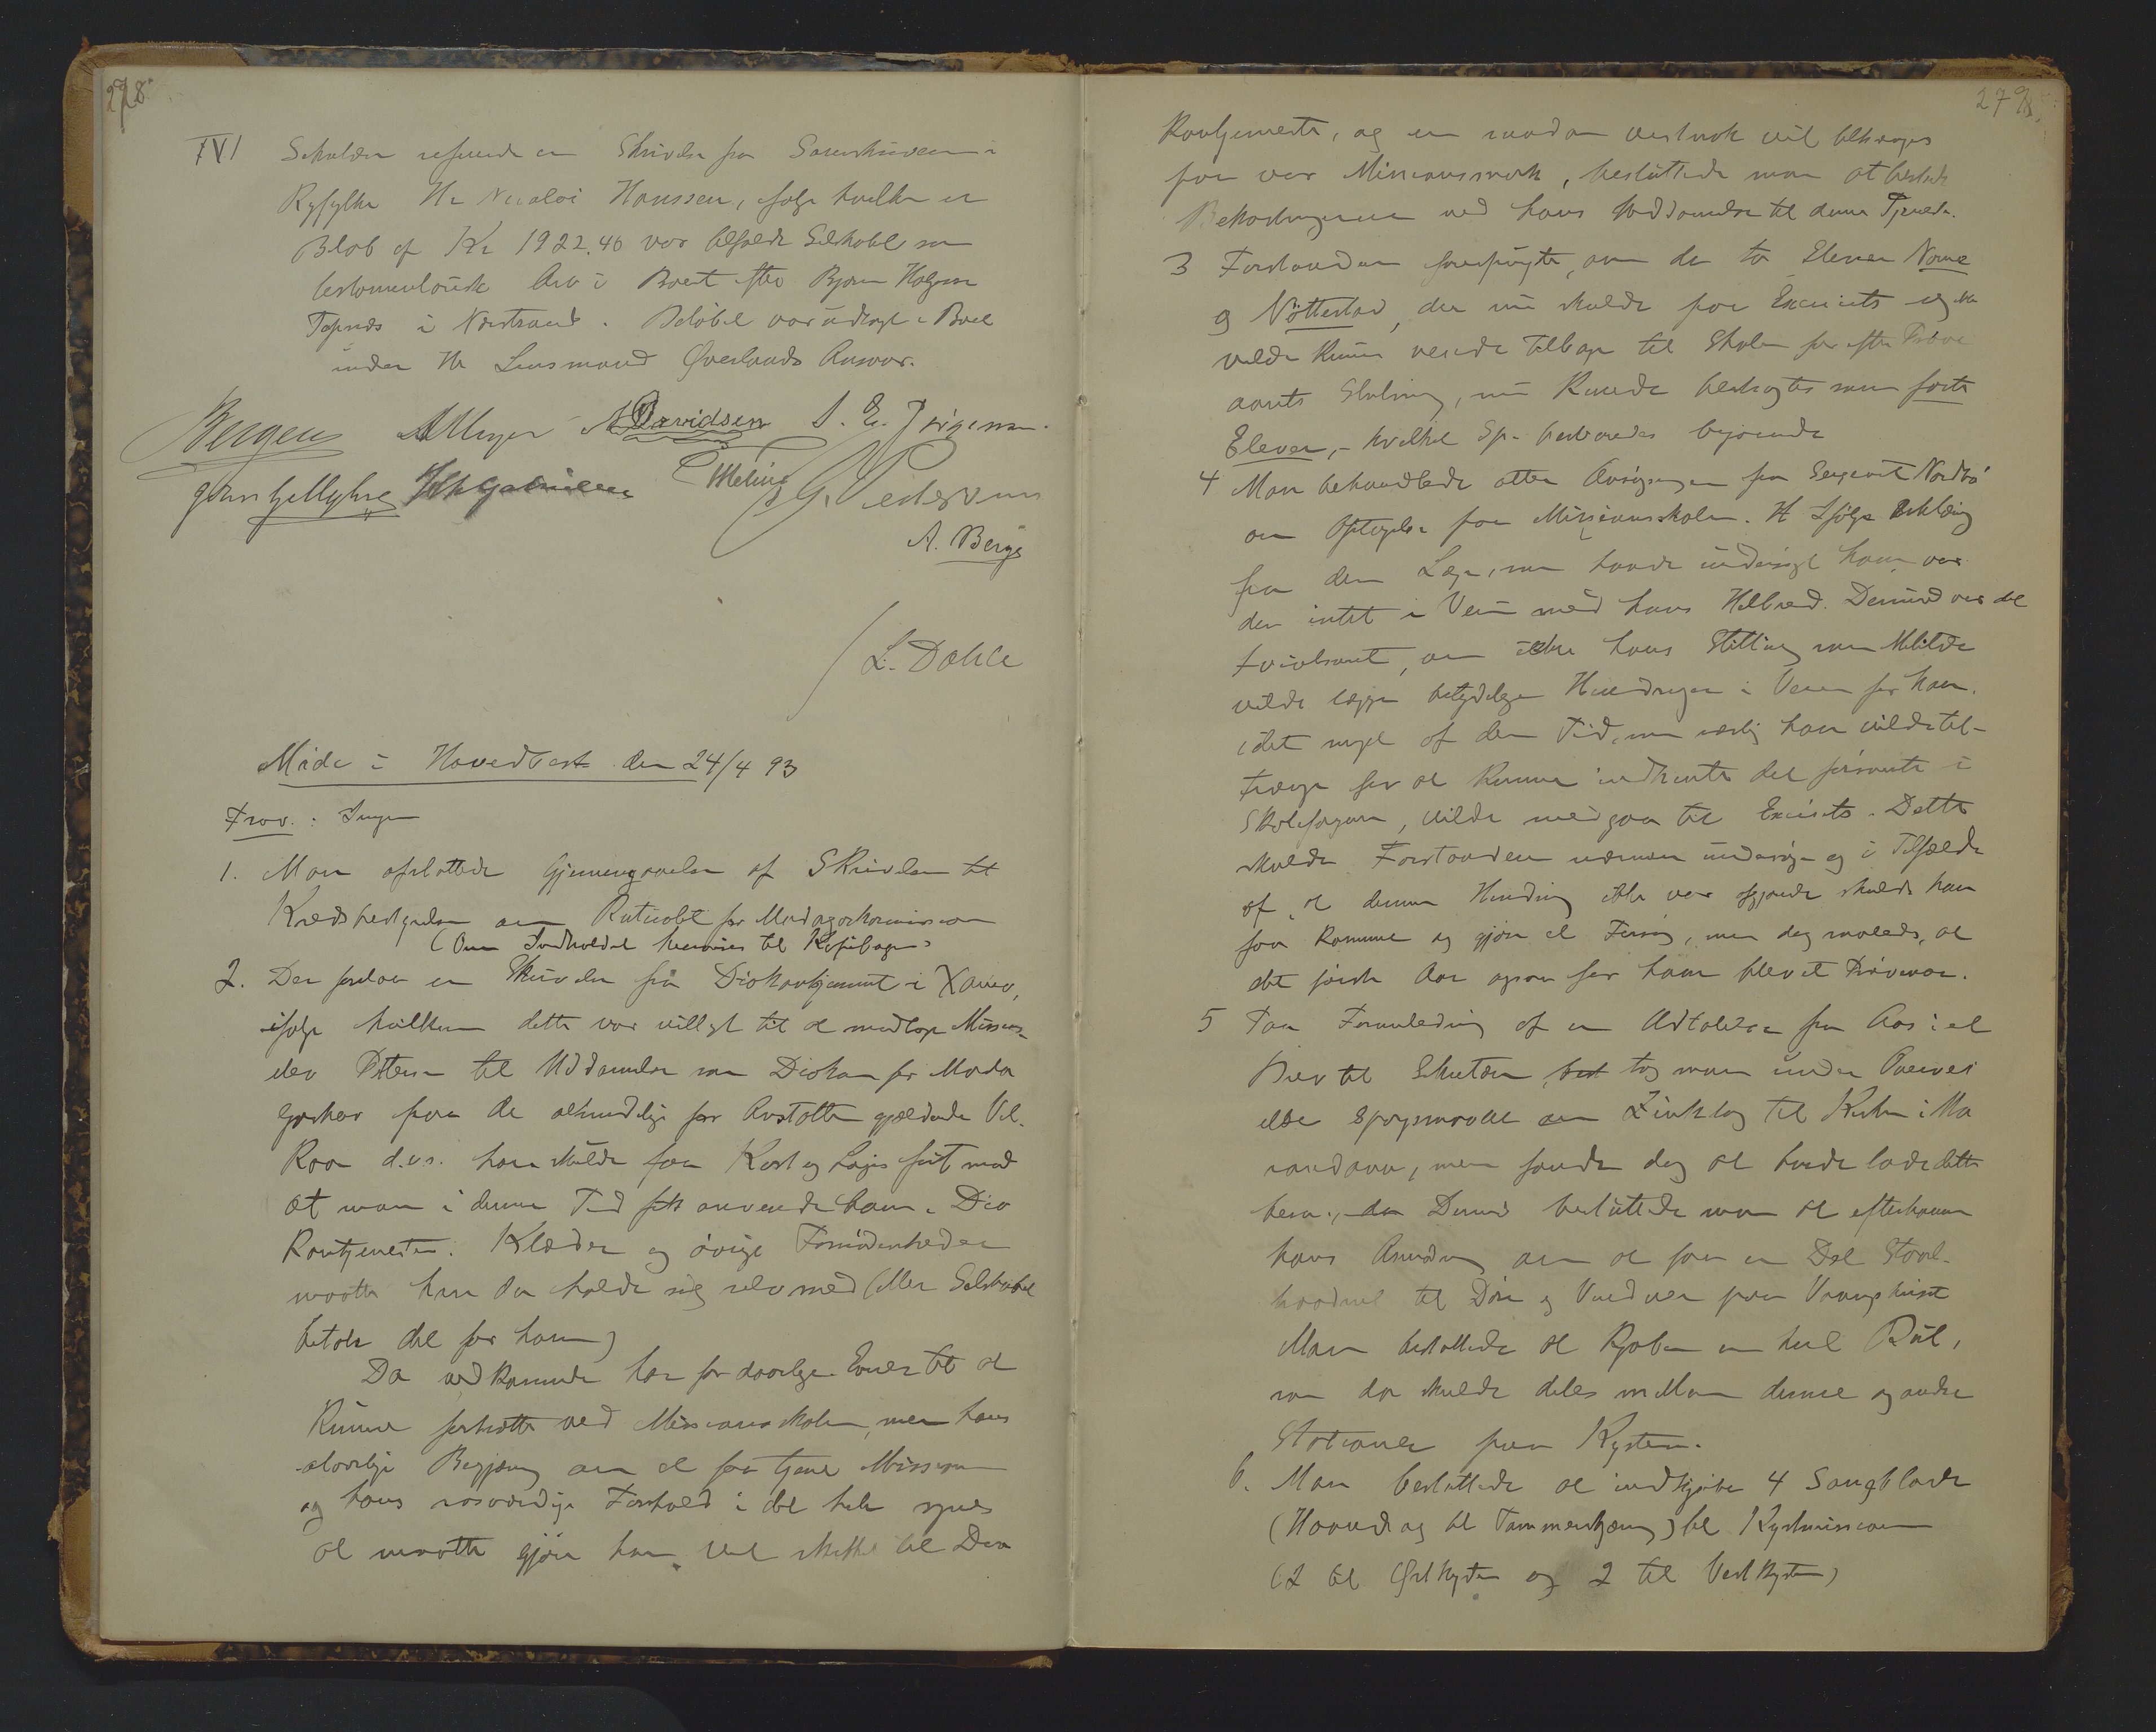 278.
IVI Sekretæren refererede en Skrivelse fra Sorenskriveren i
Ryfylke Hr Nicolai Hanssen, ifølge hvilken et
Beløb af Kr 1922,46 var tilfaldt Selskabet som
testamentarisk Arv i Boet efter Bjørn
i Nærstrand. Beløbet var udlagt i Boet
under Hr Lensmand Øverlands Ansvar.
Bergen A Meyer A Davidsen S. E. Jørgensen.
Jørn Gjelthyhre Joh Gabrielsen Meling G. Pedersen
A. Berge
/ L. Dahle
Møde i Hovedbest. den 24/4 93
Frav.: Ingen
1. Man afsluttede Gjennemgaaelsen af Skrivelsen til
Kredsbestyrelsen om for Madagaskarmissionen
(Om Indholdet henvises til Kopibogen)
2. Der forelaa en Skrivelse fra Diakonhjemmet i Xania,
ifølge hvilken dette var villigt til at modtage Missions-
elev Pettersen til Uddannelse som Diakon for Mada
gaskar paa de almindelige for Anstalten gjældende Vil-
kaar d.v.s. han skulde faa Kost og Logis frit mod
at man i denne Tid fik anvende ham i Dia
kontjenesten. Klæder og øvrige Fornødenheder
maatte han da holde sig selv med (eller Selskabet
betale det for ham)
Da vedkommende har for daarlige Evner til at
kunne fortsætte ved Missionsskolen, men hans
alvorlige Begjæring om at faa tjene Missionen
og hans rosværdige Forhold i det hele synes
at maatte gjøre ham vel skikket til Dia
279.
kontjeneste, og en saadan vistnok vil tiltrænges
paa vor Missionsmark, besluttede man at bestride
Bekostningerne ved hans Uddannelse til denne Tjeneste.
3 Forstanderen forespurgte, om de to Elever Nome
og Nøttestad, der nu skulde paa Exercits og ikke
vilde kunne vende tilbage til Skolen før efter Prøve
aarets Slutning, nu kunde betragtes som faste
Elever, - hvilket Sp. besvaredes bejaende
4 Man behandlede atter Ansøgningen fra Sergeant Nordbø
om Optagelse paa Missionsskolen. Ifølge Erklæring
fra den Læge, som havde undersøgt ham var
der intet i Veien med hans Helbred. Derimod var det
tvivlsomt, om ikke hans Stilling som Militær
vilde lægge betydelige Hindringer i Veien for ham.
idet meget af den Tid, som særlig han vilde til-
trænge for at kunne indhente det forsømte i
Skolefagene, vilde medgaa til Exercits. Dette
skulde Forstanderen nærmere undersøge og i Tilfælde
af, at denne Hindring ikke var afgjørende skulde han
faa komme og gjøre et Forsøg, men dog saaledes, at
det første Aar ogsaa for ham blev et Prøveaar.
5 Paa Foranledning af en Udtalelse fra Aas i et
Brev til Sekretæren tog man under Overvei
else Spørgsmaalet om Zinktag til Kirken i Ma
randava, men fandt dog at burde lade dette
bero. Derimod besluttede man at efterkomme
hans Anmodning om at faa en Del Staal-
traadnet til Døre og Vinduer paa Vaaningshuset
Man besluttede at kjøbe en hel Rul,
som da skulde deles mellem denne og andre
Stationer paa Kysten.
6. Man besluttede at indkjøbe 4 Saugblade
(Haandsag til Tømmerskjæring) til Kystmissionen
(2 til Østkysten og 2 til Vestkysten)